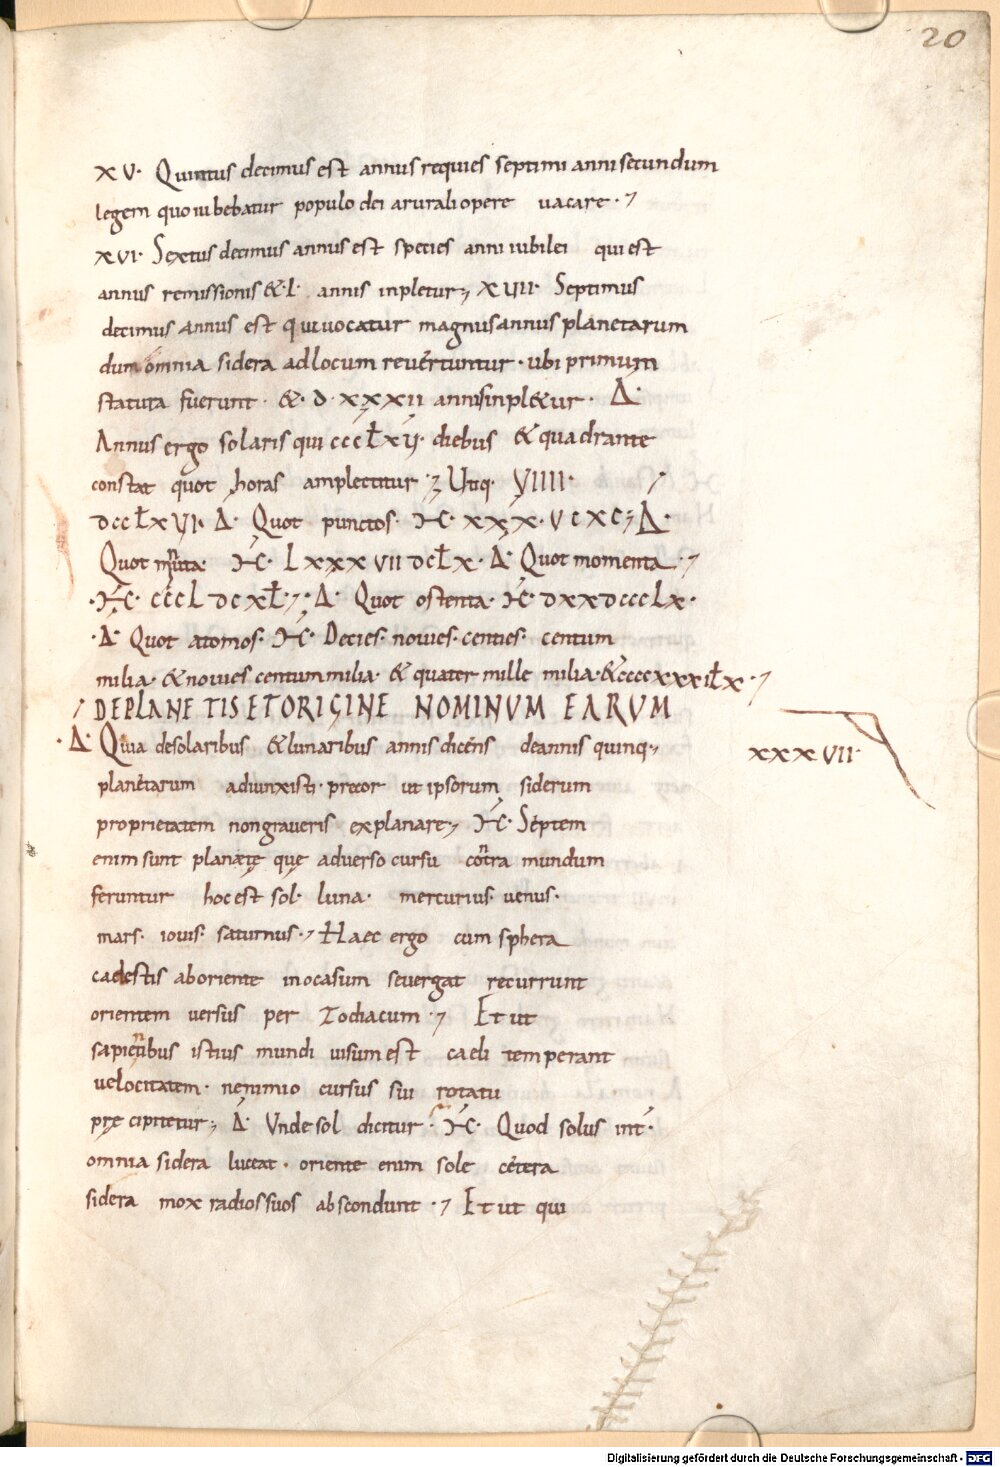 20
XV· Quintus decimus est annus requies septimi anni secundum
legem quo iubebatur populo dei a rurali opere vacare·
XVI· Sextus decimus annus est species anni iubilei qui est
annus remissionis &·L· annis inpletur; XVII· Septimus
decimus annus est qui vocatur magnus annus planetarum
dum omnia sidera ad locum revertuntur· ubi primum
statuta fuerunt· &·D·XXXII annis inpl&ur· Δ·
Annus ergo solaris qui ccclxv· diebus & quadrante
constat quot horas amplectitur; Utiq· VIIII·
DCCLXVI· Δ· Quot punctos· M· XXXV·CXC; Δ·
Quot minuta· M· LXXXVII DCLX· Δ· Quot momenta·
M· CCCL DCXL· Δ· Quot ostenta· M· DXXDCCCLX·
Δ· Quot atomos· M· Decies· novies· centies· centum
milia· & novies centum milia· & quater mille milia· & ccccxxxilx·
DE PLANETIS ET ORIGINE NOMINUM EARUM
Δ· Quia de solaribus & lunaribus annis dicens de annis quinq;
XXXVII·
planetarum adiunxisti· precor ut ipsorum siderum
proprietatem non graveris explanare; M· Septem
enim sunt planetę quę adverso cursu contra mundum
feruntur hoc est sol· luna· mercurius· venus·
mars· iovis· saturnus· Haec ergo cum sphera
caelestis ab oriente in ocasum severgat recurrunt
orientem versus per Zodiacum· Et ut
sapientibus istius mundi visum est caeli temperant
velocitatem· ne nimio cursus sui rotatu
prę cipitetur; Δ· Unde sol dicitur· M· Quod solus int·
omnia sidera luceat· oriente enim sole cetera
sidera mox radios suos abscondunt· Et ut qui
Digitalisierung gefördert durch die Deutsche Forschungsgemeinschaft - DFG